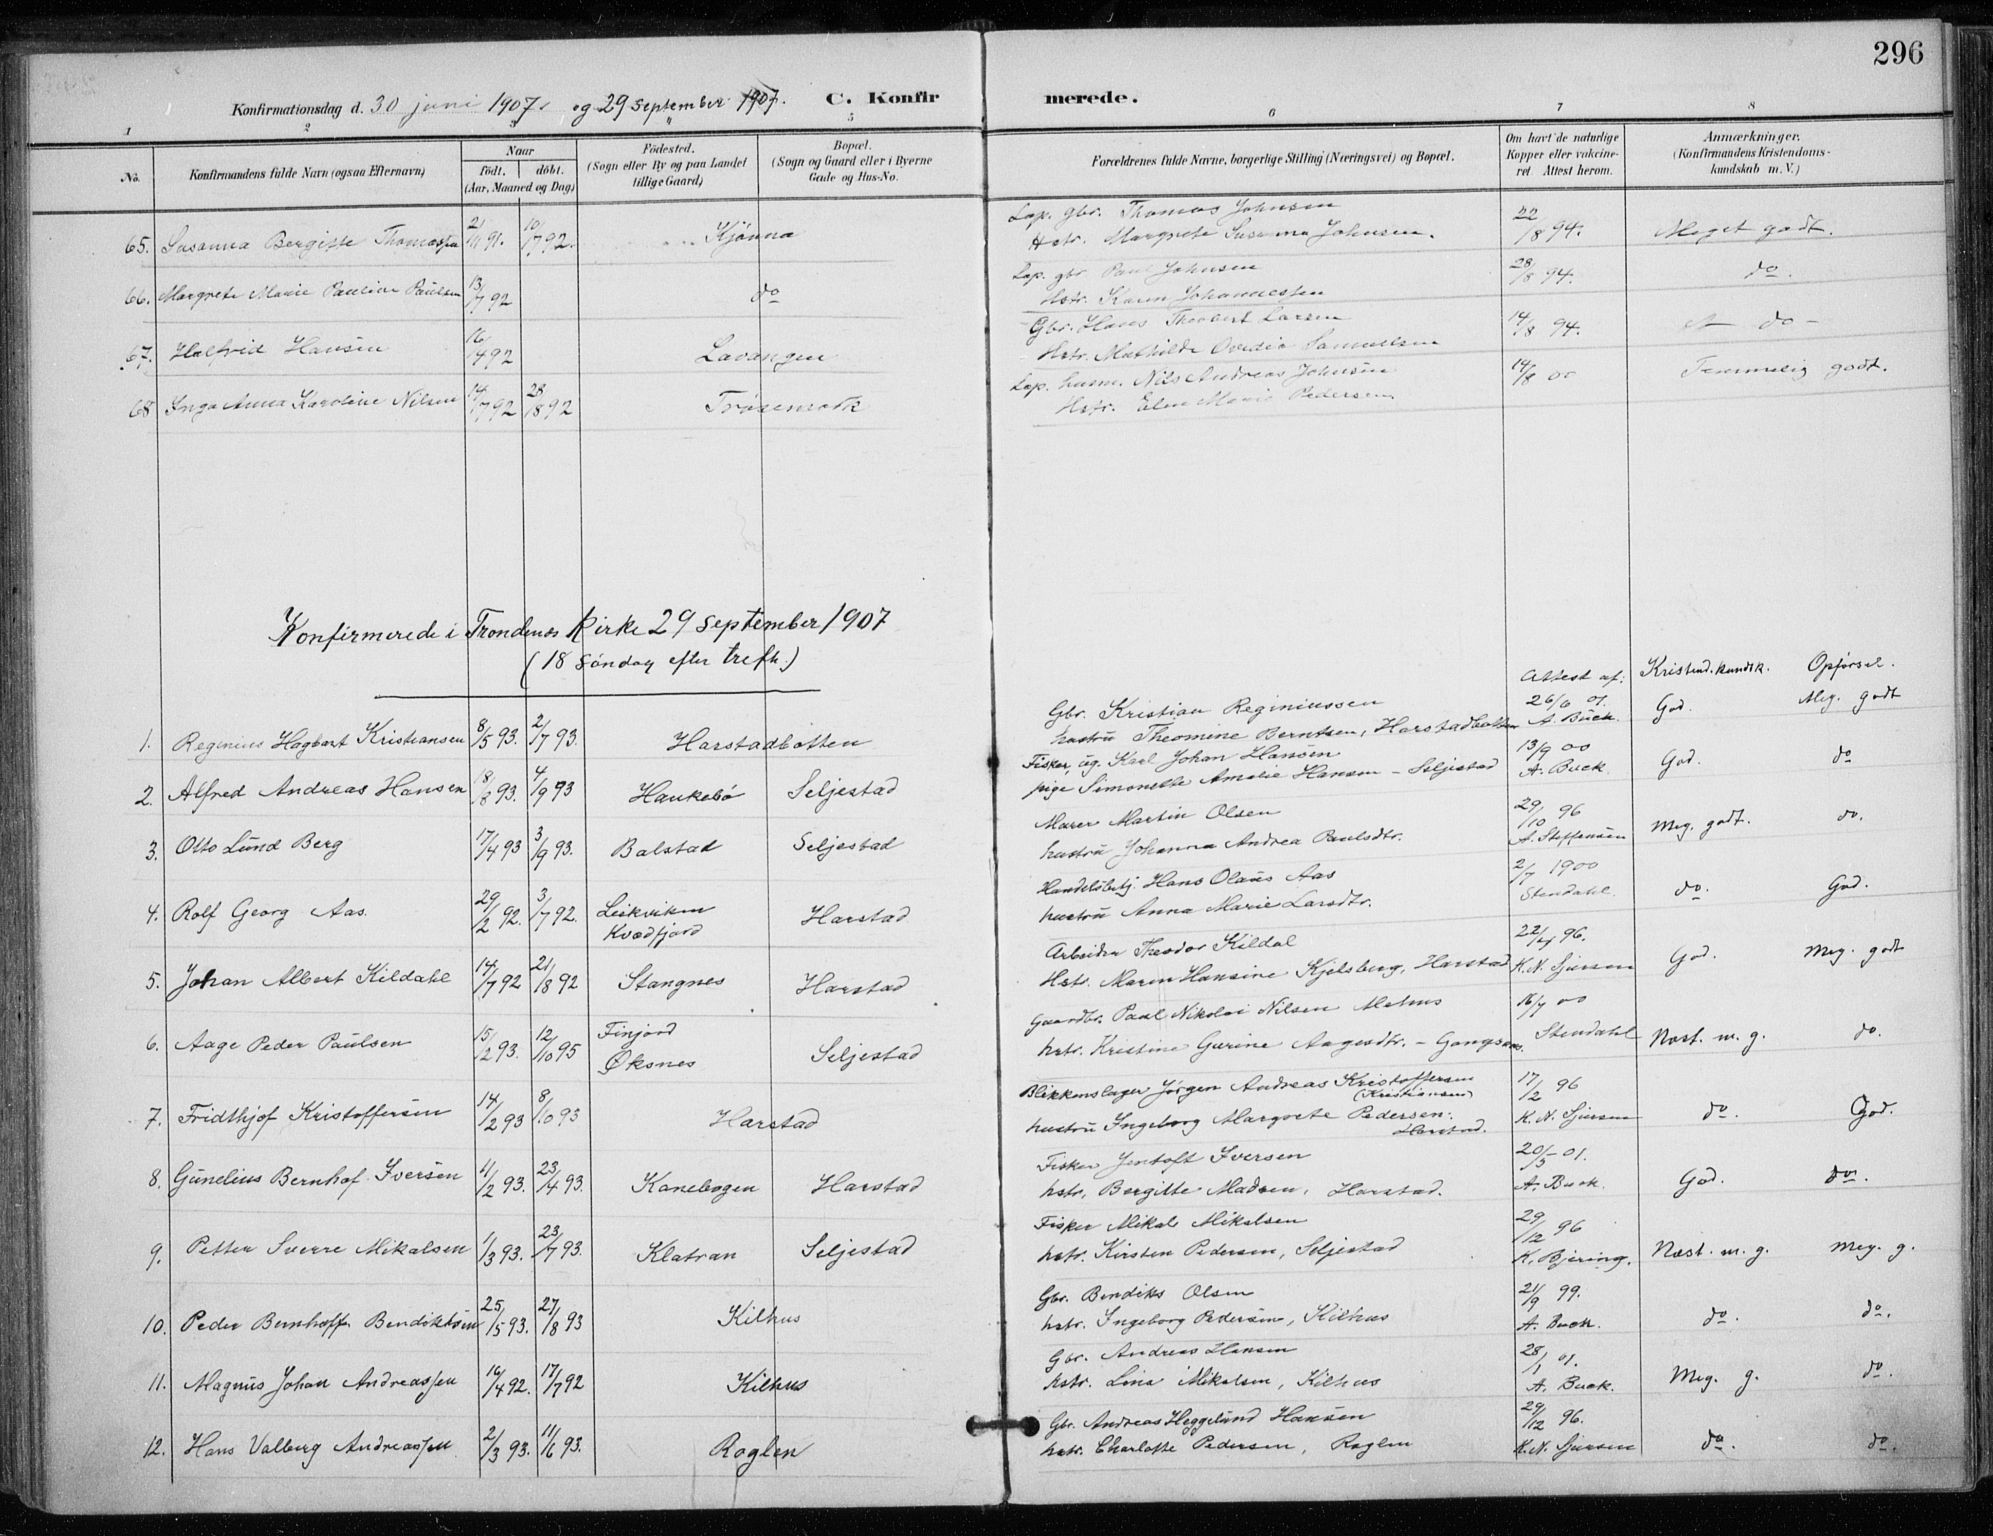 296
Konfirmationsdag d. 30 juni 1907. og 29 september 1907. C. Konfirmerede.
1 2 3 4 5 6 7 8
No. Konfirmandens fulde Navn (ogsaa Efternavn) Naar födt. döbt. (Aar, Maaned og Dag) Födested. (Sogn eller By og paa Landet tillige Gaard) Bopæl. (Sogn og Gaard eller i Byerne Gade og Hus-No. Forældrenes fulde Navne, borgerlige Stilling (Næringsvei) og Bopæl. Om havt de naturlige Kopper eller vaccineret Attest herom. Anmærkninger. (Konfirmandens Kristendomskundskab m. V.)
65. Susanna Bergitte Thomassen 2/11 91. 10/7 92. Kjönna Lap. gbr. Thomas Johnsen 22/8 94. Meget godt.
Hstr. Margrete Susanna Johnsen.
66. Margrete Marie Pauline Paulsen 13/7 92 do Lap. gbr Paul Johnsen 28/8 94. do.
Hstr. Karen Johannessen
67. Halfrid Hansen 16/4 92 Lavangen Gbr. Hans Theobert Larsen 14/8 94. do
Hstr. Mathilde Ovedia Samuelsen
68 Inga Anna Karoline Nilsen 14/7 92 28/8 92 Trösemark Lap. husm. Nils Andreas Johnsen 14/8 00 Temmelig godt.
Hstr. Elen Marie Pedersen
Konfirmerede i Trondenes Kirke 29 september 1907
(18 söndag efter trefh.)
Attest af: Kristend.kundsk. Opförsel.
1. Reginius Hagbart Kristiansen 8/5 93. 2/7 93. Harstadbotten Gbr. Kristian Reginiussen 26/6 01. God. Meg. godt
hustru Theomine Berntsen, Harstadbotten A. Buck.
2. Alfred Andreas Hansen 18/8 93. 4/9 93 Haukebö Seljestad Fisker, ug. Karl Johan Hansen 13/9 00 God. do
pige Simonette Amalie Hansen - Seljestad A. Buck
3. Otto Lund Berg 17/4 93 3/9 93. Balstad Seljestad Murer Martin Olsen 29/10 96 Meg. godt. do.
hustru Johanna Andrea Paulsdtr. A. Steffensen
4. Rolf Georg Aas. 29/2 92. 3/7 92. Leikviken Kvædfjord Harstad Handelsbetj. Hans Olaus Aas 2/7 1900 do. God.
hustru Anna Marie Larsdtr. Stendahl.
5. Johan Albert Kildahl 14/7 92 21/8 92 Stangnes Harstad Arbeider Theodor Kildal 22/4 96. God. Meg. godt
Hstr. Maren Hansine Kjelsberg, Harstad K. N. Sjursen
6. Aage Peder Paulsen 15/2 93. 12/10 95 Finjord Öksnes Seljestad Gaardbr. Paul Nikolai Nilsen 16/7 00 Næst. m. g. do.
hstr. Kristine Gurine Aagesdtr. - Gangsaas. Stendahl
7. Fridthjof Kristoffersen 14/2 93 8/10 93 Harstad Blikkenslager Jörgen Andreas Kristoffersen (Kristiansen) 17/2 96 do. God.
hustru Ingeborg Margrete Pedersen. Harstad. K. N. Sjursen
8. Gunelius Bernhof Iversen 11/2 93. 23/4 93. Kanebogen Harstad Fisker Jentoft Iversen 20/5 01. God. do.
hstr. Bergitte Madsen, Harstad. A. Buck.
9. Petter Sverre Mikalsen 1/3 93. 23/7 93. Klatran Seljestad Fisker Mikal Mikalsen 29/12 96 Næst. m. g. Meg. g.
hstr. Kirsten Pedersen, Seljestad K. Bjering.
10. Peder Bernhoff Bendiktsen 25/5 93. 27/8 93 Kilhus Gbr. Bendiks Olsen 21/9 99. do. do.
hstr. Ingeborg Pedersen, Kilhus A. Buck.
11. Magnus Johan Andreassen 16/4 92. 17/7 92 Kilhus Gbr. Andreas Hansen 28/1 01. Meg. g. do.
hstr. Lina Mikalsen, Kilhus A. Buck.
12. Hans Valberg Andreassen 2/3 93. 11/6 93. Roglen Gbr. Andreas Heggelund Hansen 29/12 96. do. do.
hstr. Charlotte Pedersen, Roglen K. N. Sjursen